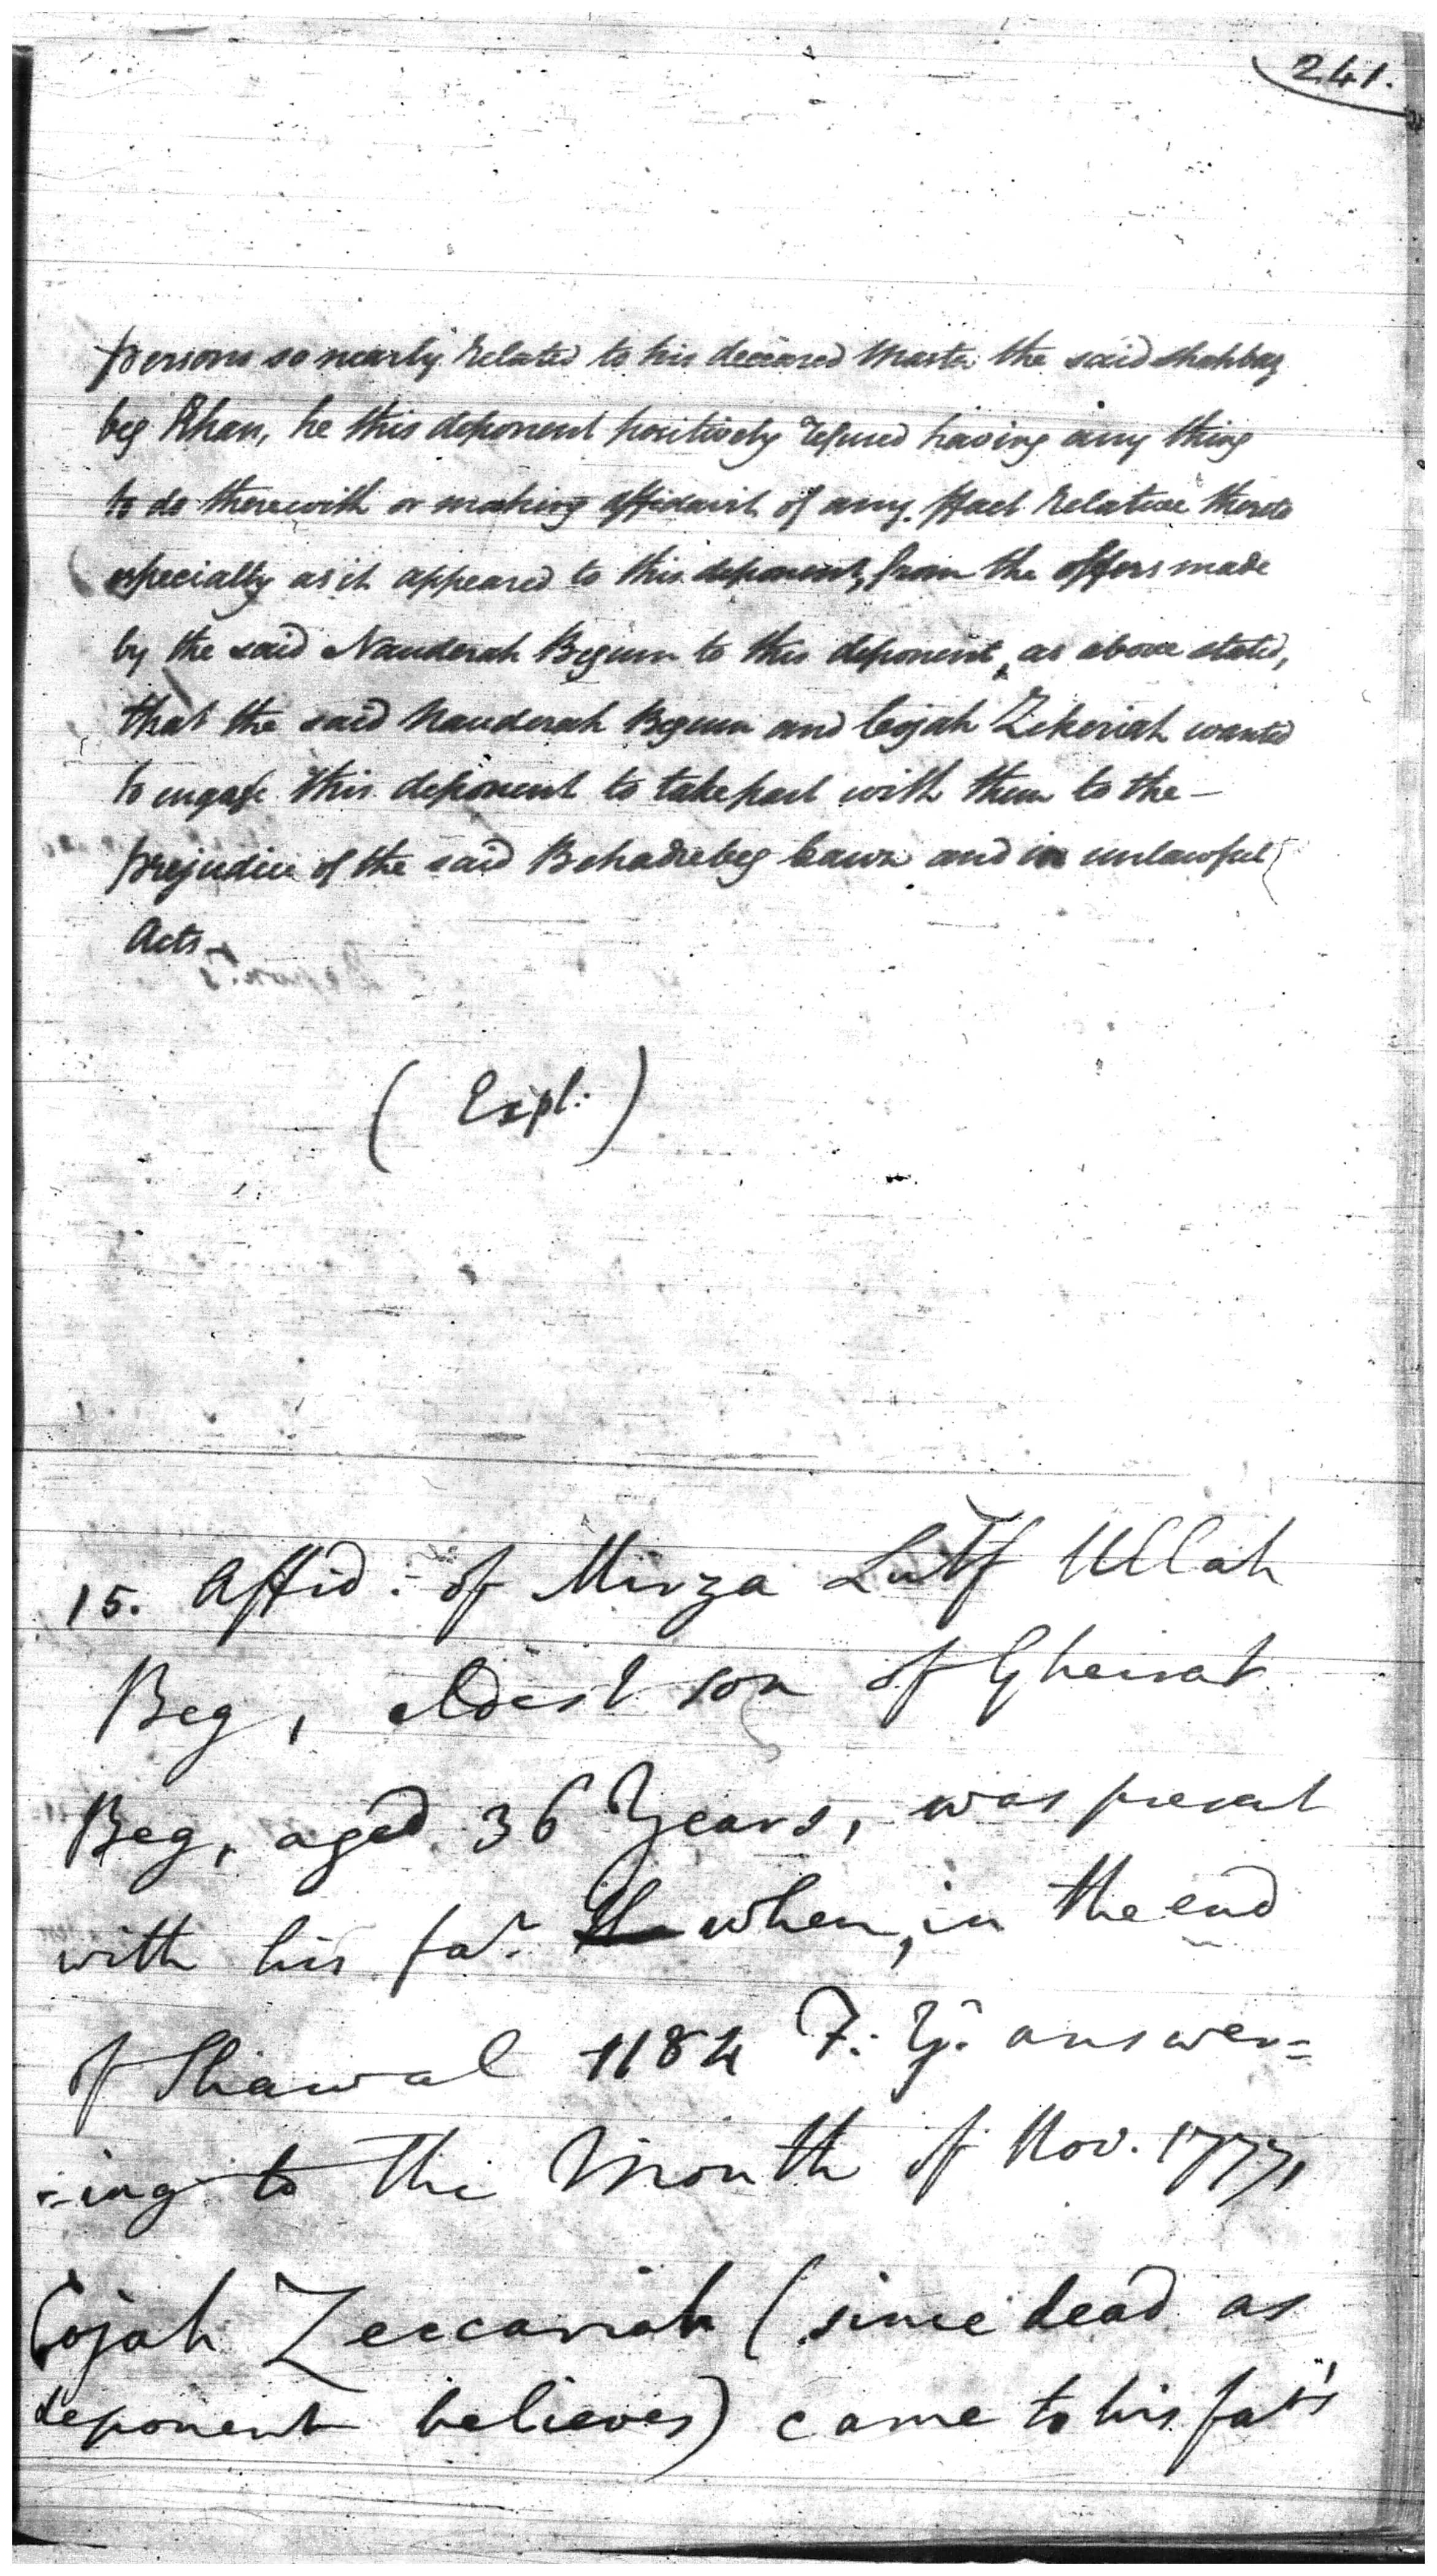 241.
persons so nearly related to his deceased Master the said Shahbaz
beg Khan, he this deponent positively refused having any thing
to do therewith or making affidavit of any ffact relative thereto
especially as it appeared to this deponent, from the offers made
by the said Nauderah Begum to this deponent, as above stated,
that the said Nauderah Begum and Cojah Zekeriah wanted
to engage this deponent to take part with them to the –
prejudice of the said Behadrebeg Cawn and in unlawful
Acts –
( Expl: )
15. Affid: of Mirza Lutf Ullah
Beg, eldest son of Gheirat
Beg, aged 36 Years, was present
with his far. when, in the end
of Shawal 1184 F: Yr. answer=
=ing to the Month of Nov. 1777,
Cojah Zeccariah (since dead as
deponent believes) came to his far's